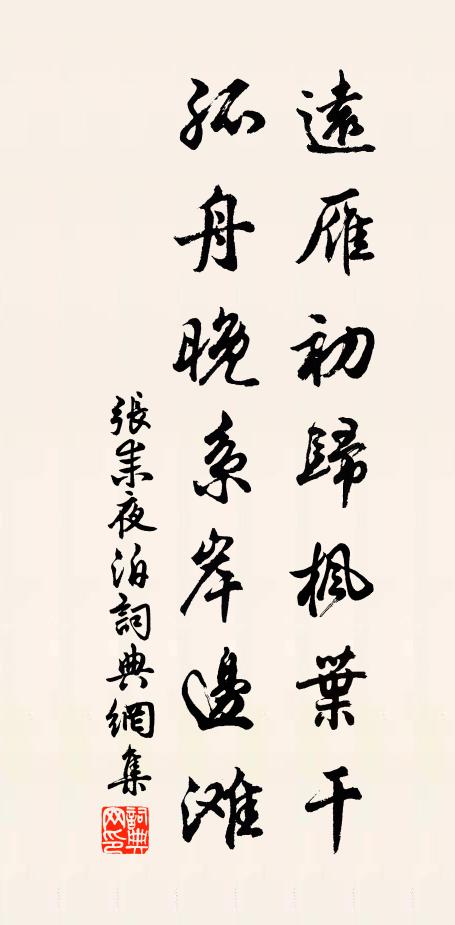 遠雁初歸楓葉干
孤舟晚系岸邊滩
張耒夜泊詞典網集
詞典网印